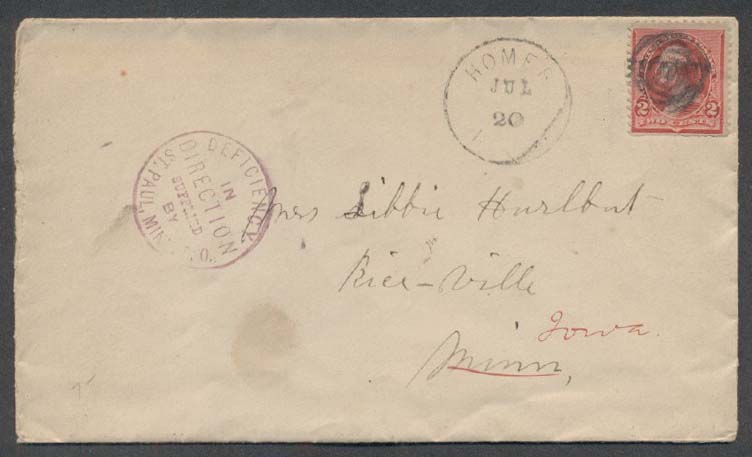 HOMER
JUL
20
2 2
TWO CENTS
DEFICIENCY
IN
DIRECTION
SUPPLIED
BY
ST. PAUL, MINN. P.O.
Mrs Libbie Hurlbut
Rice-Ville
Iowa.
Minn,